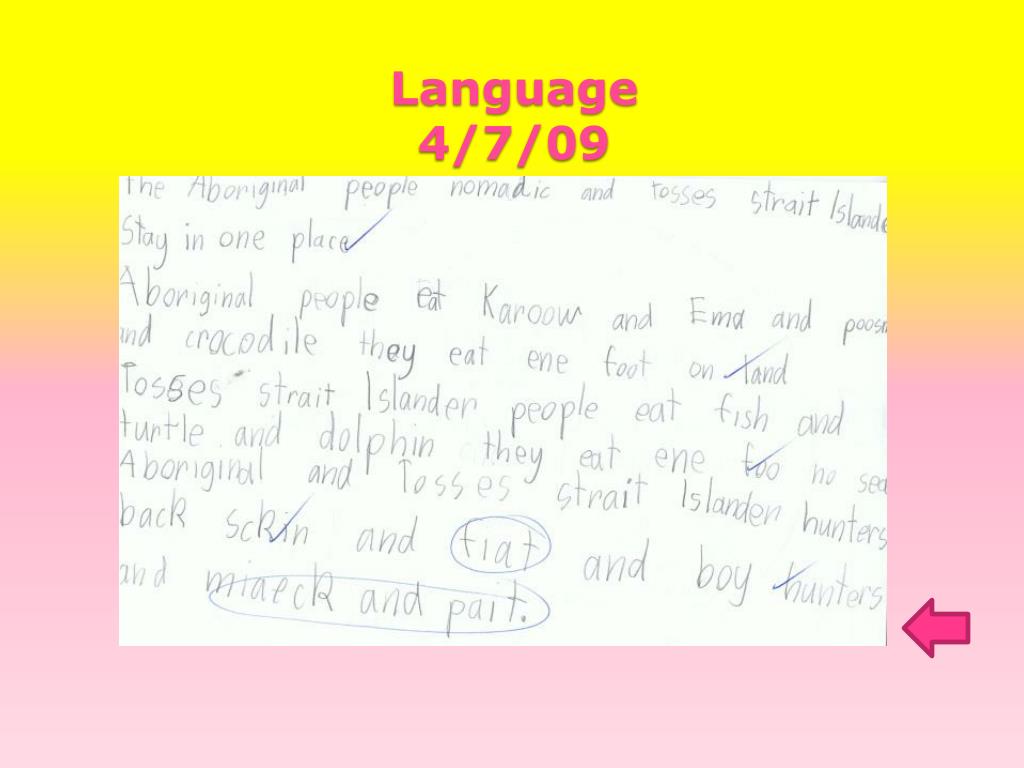 Language
4/7/09
The Aboriginal people nomadic and tosses strait Islande
Stay in one place
Aboriginal people eat Karoow and Ema and poosm
and crocodile they eat ene foot on land
Tosses strait Islander people eat fish and
turtle and dolphin they eat ene foo no sea
Aboriginal and Tosses strait Islander hunters
back sckin and fiat and boy hunters
and miaeck and pait.